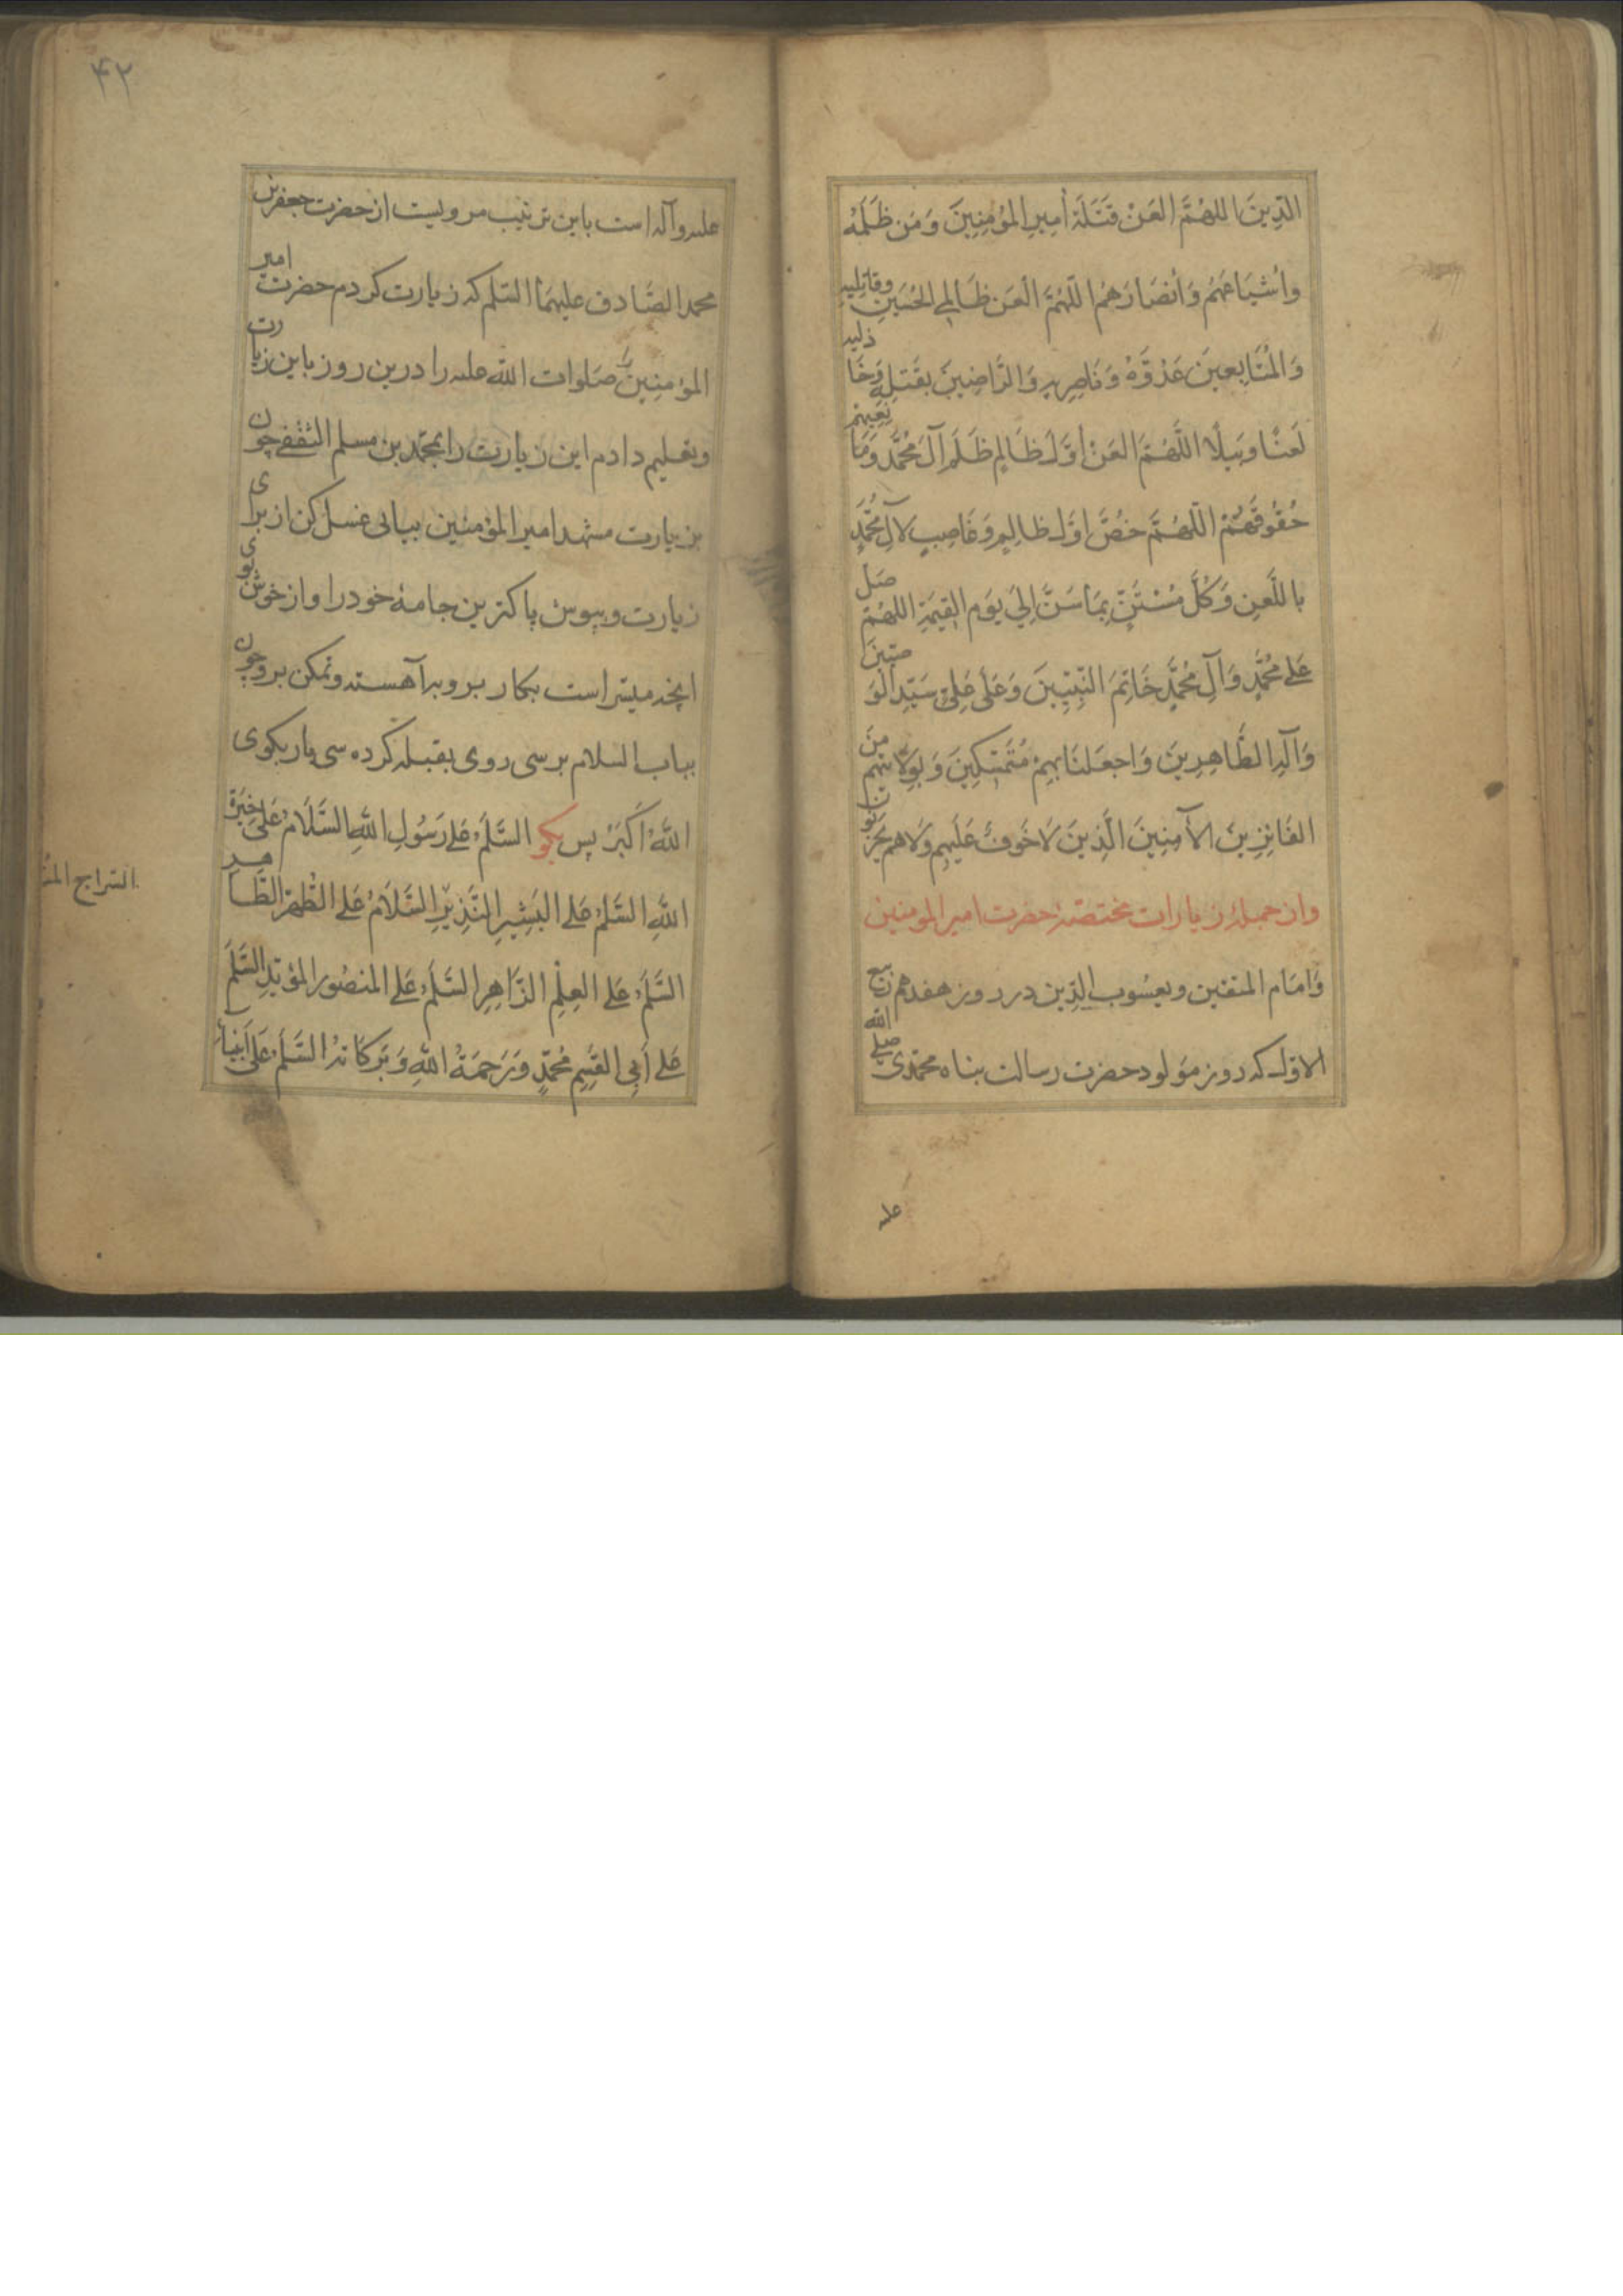 الدِّينَ اللهُمَّ العَنْ قَتَلَةَ أَمِيرِ المُؤمِنِينَ وَمَن ظَلَمَهُ
وأشْيَاعَهُم وَأنصَارَهُم اللّهُمَّ العَن ظَالِمِي الحُسَينِ وقاتِلِيهِ
وَالمُتَابِعينَ عَدُوَّهُ وَنَاصِرِيهِ وَالرَّاضِينَ بقَتلِهِ وَخَاذِلِيهِ
لَعنًا وَبيلًا اللَّهُمَّ العَنْ أوَّلَ ظَالِمٍ ظَلَمَ آلَ مُحَمَّدٍ وَمَانِعِيهِم
حُقُوقَهُمْ اللّهُمَّ خُصَّ اوَّلَ ظالِمٍ وَغَاصِبٍ لآلِ مُحَمَّدٍ
باللَّعنِ وَكُلَّ مُسْتَنٍّ بِمَا سَنَّ اِلَى يَومِ القِيمَةِ اللهُمَّ صَلِّ
عَلى مُحَمَّدٍ وَآلِ مُحَمَّدٍ خَاتِمَ النَّبِيِّينَ وَعَلَى عَلِيٍّ سَيِّدِ الوَصِيّينَ
وَآلِهِ الطَّاهِرِينَ وَاجعَلنَا بِهِمْ مُتَمَسِّكِينَ وَبِوَلَايَتِهِم مِنَ
الفَائِزِينَ الآمِنِينَ الَّذِينَ لَا خَوفٌ عَلَيهِم وَلَا هم يَحزَنُونَ
واز جملهٔ زيارات مختصهٔ حضرت امير المومنين
وَامَام المتقين ويعسُوب الدِّين در روز هفدهم ربيع
الاوّل كه روز مَولود حضرت رسالت پناه محمّدى صلى الله
عليه
۴۲
عليه وآله است باين ترتيب مرويست از حضرت جعفر بن
محمد الصَّادق عليهمَا السّلم كه زيارت كردم حضرت امير
المؤمِنِينَ صَلَوات اللّه عليه را درين روز باين زيارت
وتعليم دادم اين زيارت را بمحمّد بن مسلم الثقفى چون
بزيارت مشهد امير المؤمنين بيائى غسل كن از براى
زيارت وبپوش پاكترين جامهٔ خود را واز خوش بوى
انچه ميسّر است بكار بر و براه آهسته وتمكن برو چون
بباب السلام برسى روى بقبله كرده سى بار بكوى
اللّهُ اَكبَرُ پس بكو السَّلَمُ عَلى رَسُولِ اللّهِ السَّلَامُ عَلى خِيَرَةِ
اللّهِ السَّلَمُ عَلى البَشِيرِ النَّذِيرِ السَّلَامُ عَلى الطُّهرِ الطَّاهِرِ
السَّلَمُ عَلى العِلْمِ الزَّاهِرِ السَّلَمُ عَلى المنصُورِ المؤيَّدِ السَّلَمُ
عَلى أبِى القسِمِ مُحَمَّدٍ وَرَحمَةُ اللّهِ وَبَركَاتهُ السَّلَمُ عَلى أنبِيَاءِ
السّراج